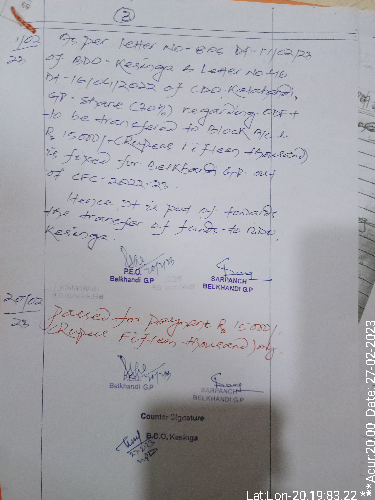 (2)
As per letter No-896 Dt-17/02/23
of BDO-Kesinga & Letter No-
Dt-16/04/2022 of CDO Kalahandi,
GP-Share (20%) regarding ODF+
to be transfered to Block A/c
Rs 15000/-(Rupees Fifteen thousand)
is fixed for Belkhandi GP out
of CFC-2022-23.
Hence it is put up towards
the transfer of funds to BDO,
Kesinga.
P.E.O.
Belkhandi G.P
SARPANCH
BELKHANDI G.P
20/02
23
Passed for payment Rs 15000/-
(Rupees Fifteen thousand) only.
P.E.O.
Belkhandi G.P
SARPANCH
BELKHANDI G.P
Counter Signature
B.D.O, Kesinga
Lat:Lon-20.19:83.22 ***Acur:20.00, Date, 27-02-2023